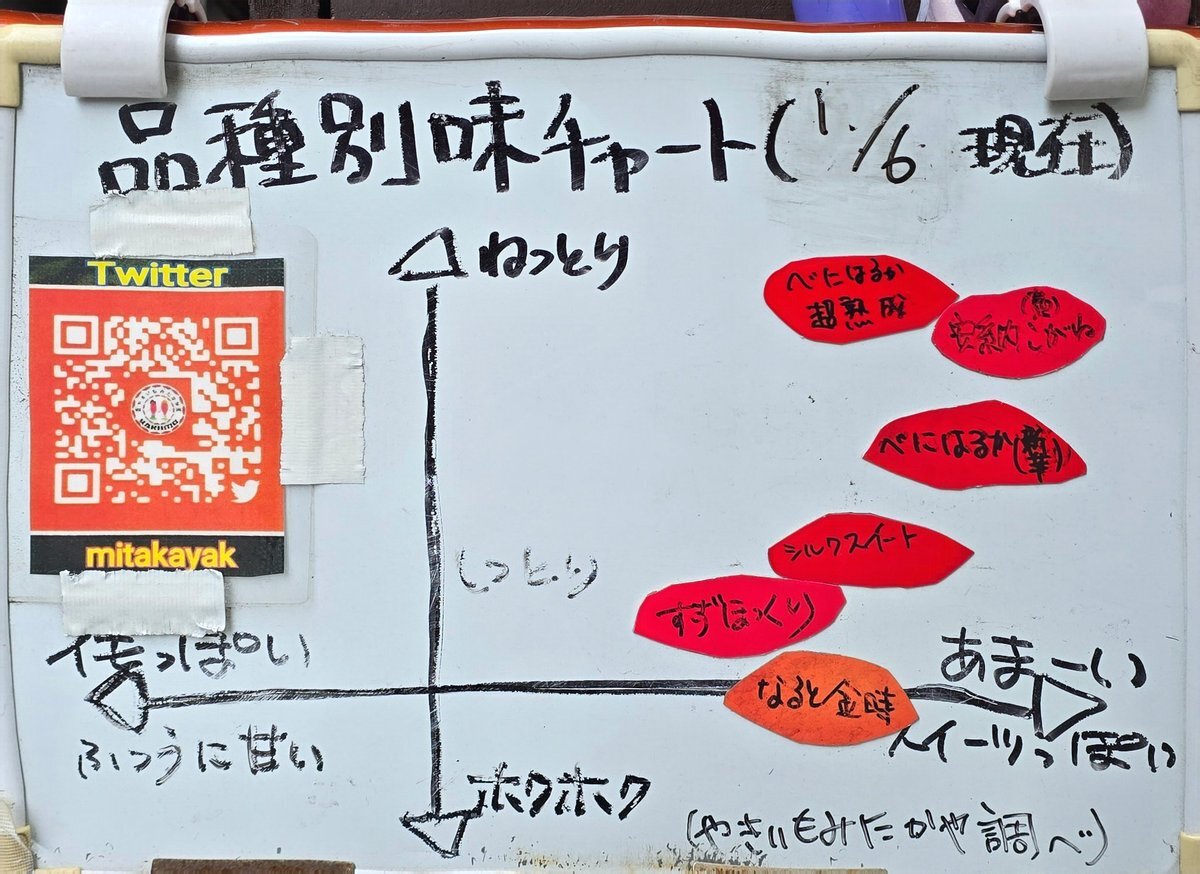 品種別味チャート(1/6現在)
Twitter
mitakayak
ねっとり
べにはるか
超熟成
安納こがね
べにはるか(新芋)
シルクスイート
しっとり
すずほっくり
なると金時
イモっぽい
ふつうに甘い
あまーい
スイーツっぽい
ホクホク
(やきいもみたかや調べ)